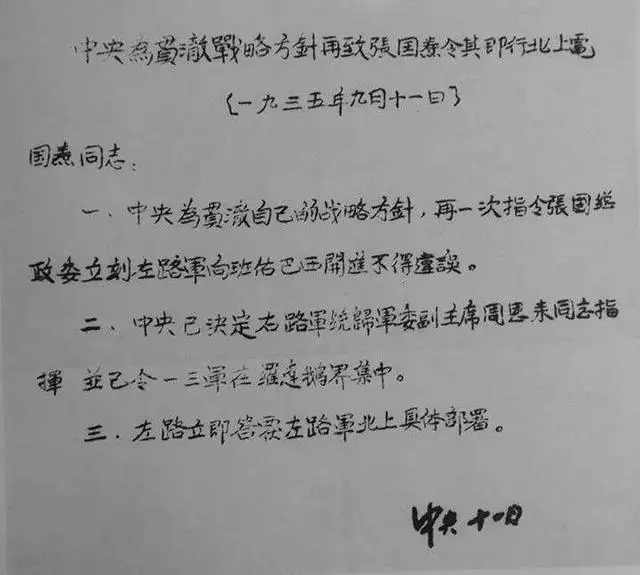 中央為貫澈戰略方針再致張国燾令其即行北上電
(一九三五年九月十一日)
国燾同志：
一．中央為貫澈自己的战略方針，再一次指令張国燾
政委立刻左路軍向班佑巴西開進不得違誤。
二．中央已决定右路軍统歸軍委副主席周恩来同志指
揮 並已令一三軍在羅達鵝界集中。
三．左路立即答覆左路軍北上具体部署。
中央 十一日